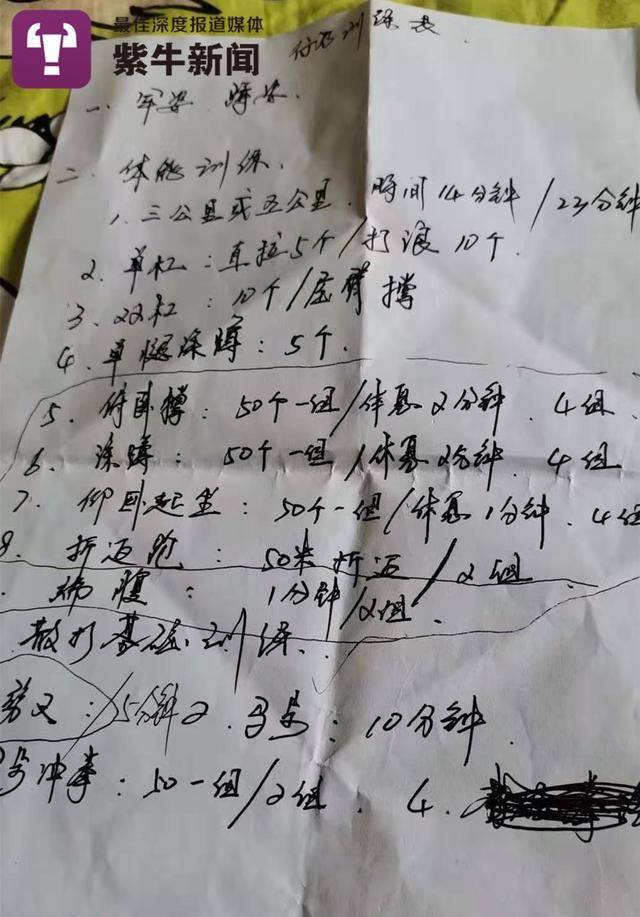 最佳深度报道媒体
紫牛新闻
训练表
一、军姿 蹲姿.
二、体能训练.
1. 三公里或五公里. 时间14分钟/23分钟
2. 单杠:直拉5个/打浪10个.
3. 双杠:10个/屈臂撑
4. 单腿深蹲:5个.
5. 俯卧撑:50个一组/休息2分钟. 4组.
6. 深蹲:50个一组/休息2分钟. 4组
7. 仰卧起坐:50个一组/休息1分钟. 4组
8. 折返跑:50米折返/2组.
绷腹:1分钟/2组.
散打基础训练.
劈叉:15分钟 2. 马步:10分钟.
步冲拳:50一组/2组. 4.